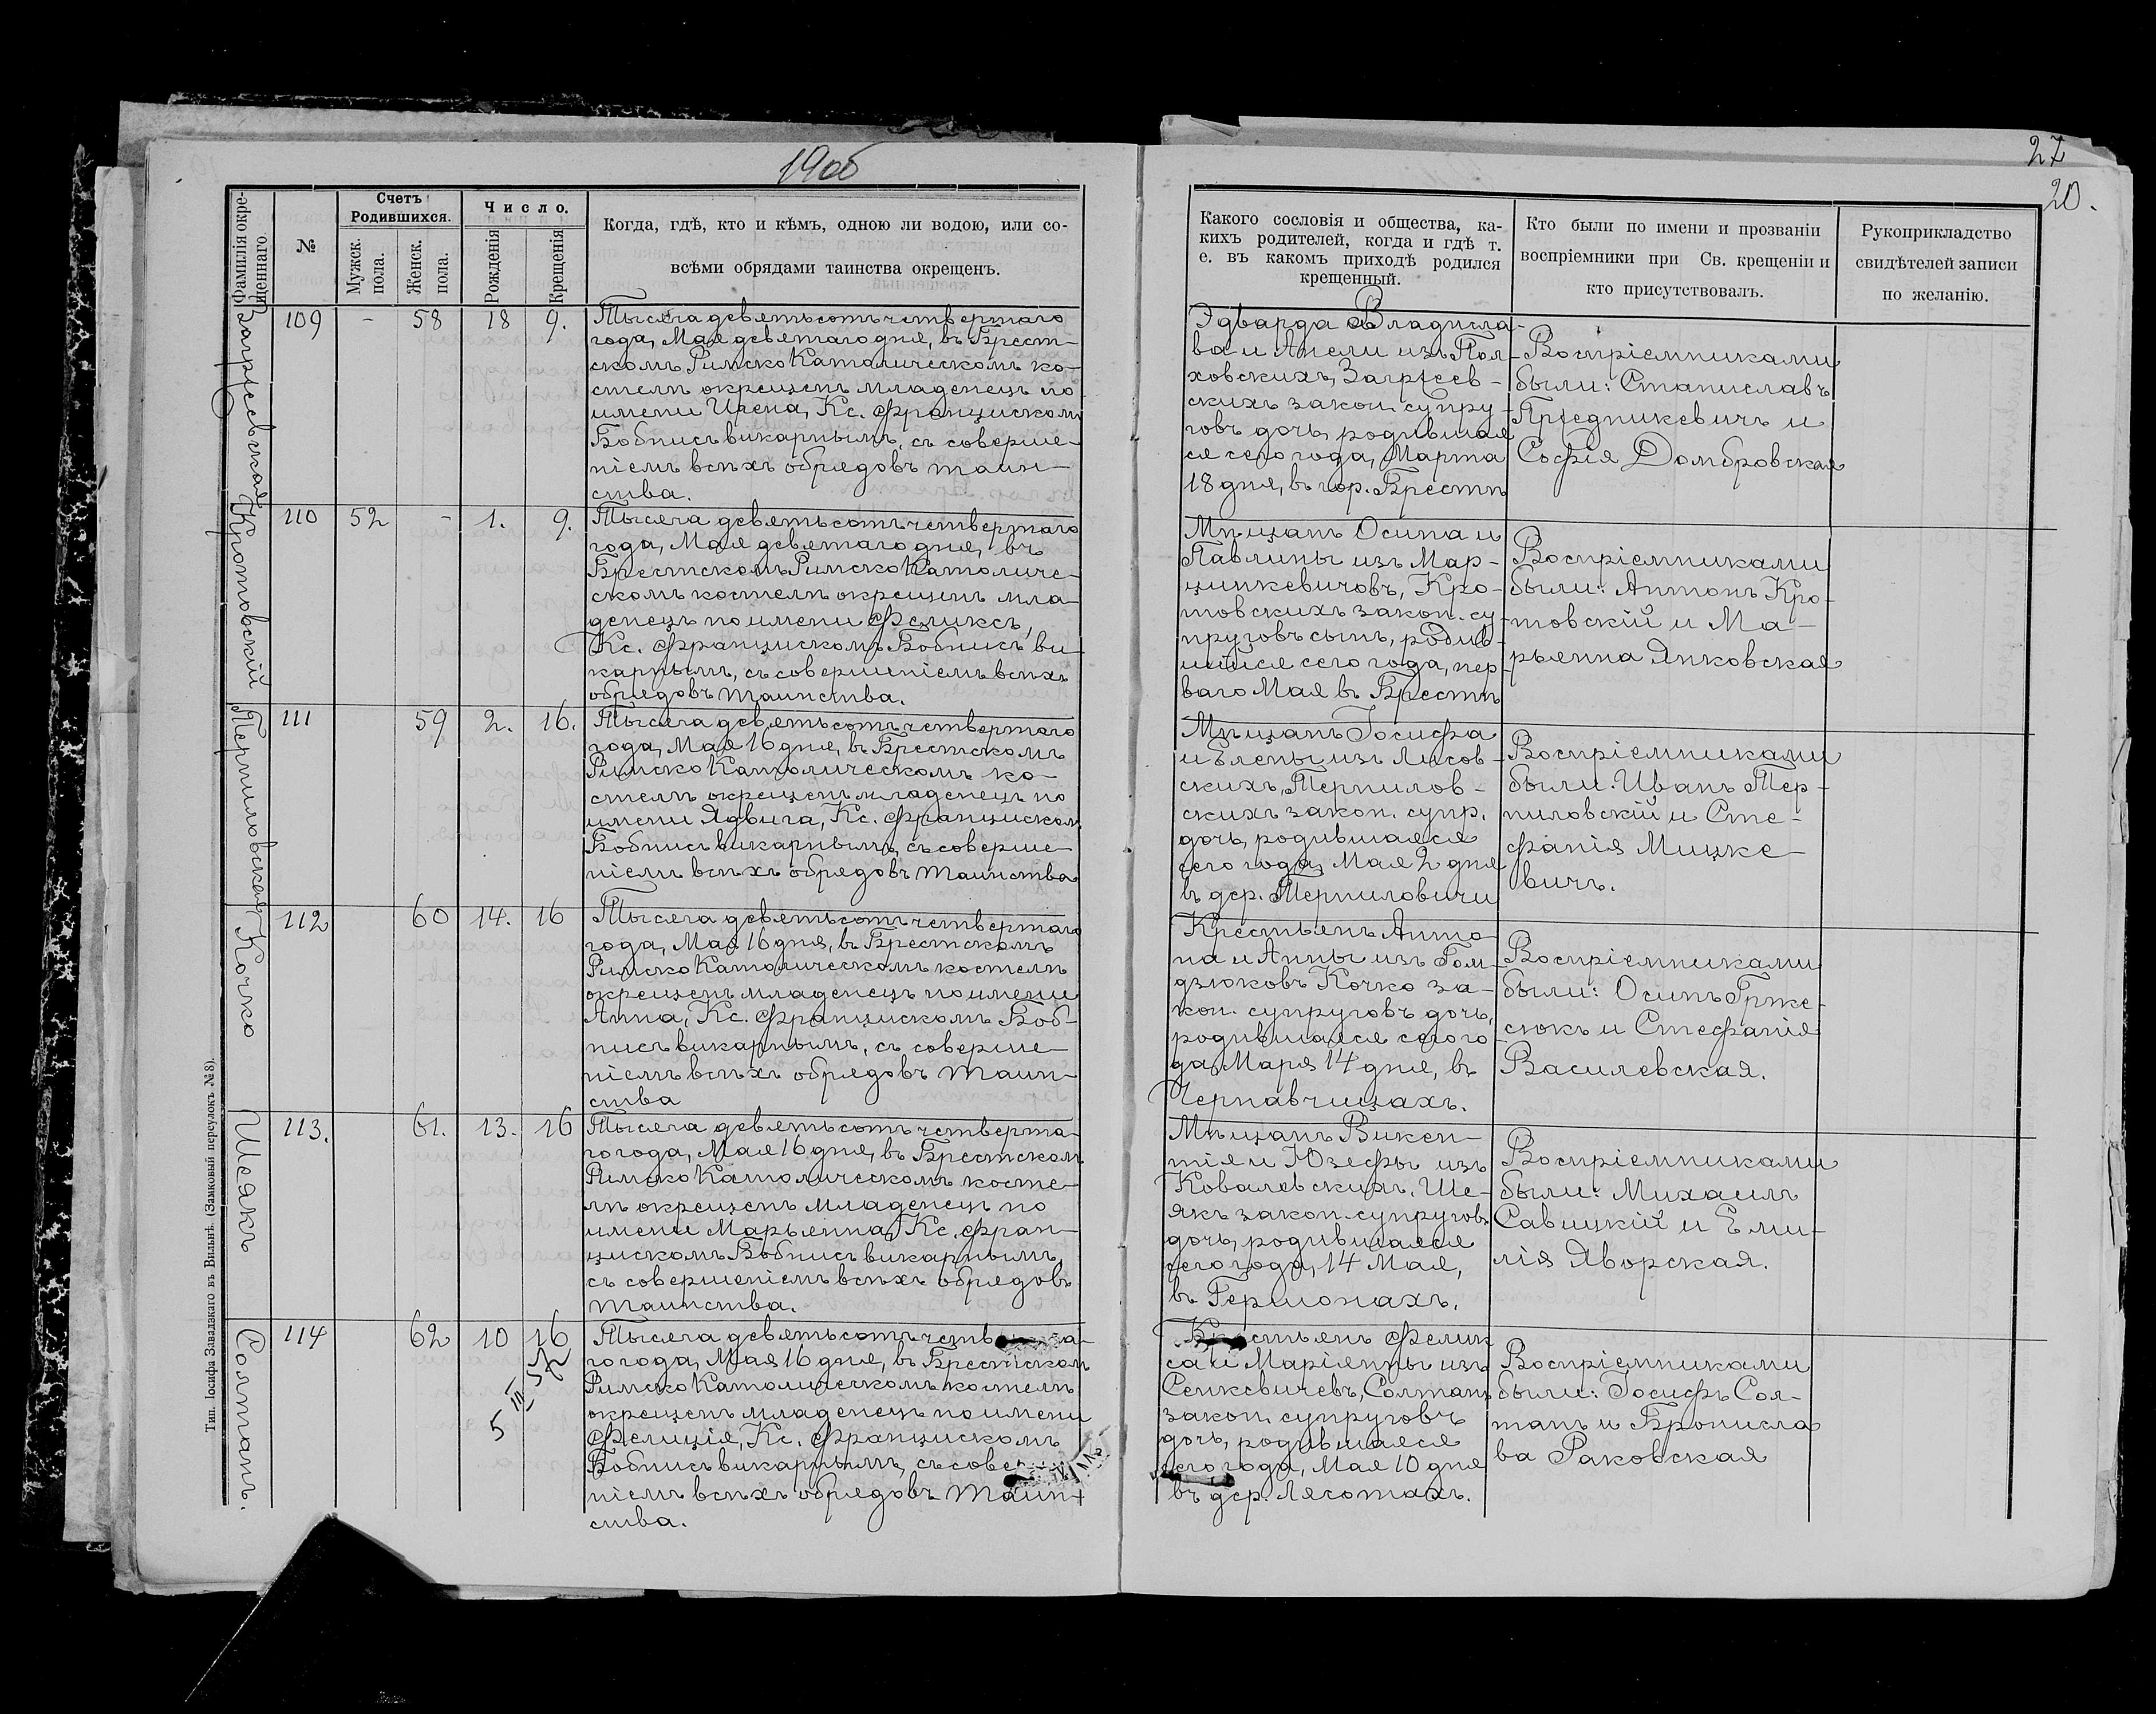 1906
27
20.
Фамилія окрещеннаго
№
Счетъ Родившихся.
Мужск. пола.
Женск. пола.
Число.
Рожденія
Крещенія
Когда, гдѣ, кто и кѣмъ, одною ли водою, или со-
всѣми обрядами таинства окрещенъ.
Какого сословія и общества, ка-
кихъ родителей, когда и гдѣ т.
е. въ какомъ приходѣ родился
крещенный.
Кто были по имени и прозванію
воспріемники при Св. крещеніи и
кто присутствовалъ.
Рукоприкладство
свидѣтелей записи
по желанію.
109 - 58 18 9.
Тысяча девятьсотъ четвертаго
года, Мая девятаго дня, въ Брест-
скомъ Римско Католическомъ ко-
стелѣ окрещенъ младенецъ по
имени Ирена, Кс. Францискомъ
Бобнисъ викарнымъ, съ соверше-
ніемъ всѣхъ обрядовъ таин-
ства.
Эдварда Владисла-
ва и Анели изъ Пол-
ховскихъ, Загряев-
скихъ закон. супру-
говъ дочь, родившая
ся сего года, Марта
18 дня, въ гор. Брестѣ
Воспріемниками
были: Станиславъ
и
Софія Домбровская
Кротовскій
110 52 - 1. 9.
Тысяча девятьсотъ четвертаго
года, Мая девятаго дня, въ
Брестскомъ Римско Католиче-
скомъ костелѣ окрещенъ мла-
денецъ по имени Феликсъ,
Кс. Францискомъ Бобнисъ ви-
карнымъ, съ совершеніемъ всѣхъ
обрядовъ таинства.
Мѣщанъ Осипа и
Павлины изъ Мар-
цинкевичовъ, Кро-
товскихъ закон. су-
пруговъ сынъ, родив-
шійся сего года, пер-
ваго Мая въ Брестѣ
Воспріемниками
были: Антонъ Кро-
товскій и Ма-
рьянна Янковская
Терпиловская
111 59 2. 16.
Тысяча девятьсотъ четвертаго
года, Мая 16 дня, въ Брестскомъ
Римско Католическомъ ко-
стелѣ окрещенъ младенецъ по
имени Ядвига, Кс. Францискомъ
Бобнисъ викарнымъ, съ соверше-
ніемъ всѣхъ обрядовъ таинства
Мѣщанъ Іосифа
и Елены изъ Лисов-
скихъ, Терпилов-
скихъ закон. супр.
дочь, родившаяся
сего года, Мая 2 дня
въ дер. Терпиловичи
Воспріемниками
были: Иванъ Тер-
пиловскій и Сте-
фанія Мицке-
вичъ.
Кочко
112 60 14. 16
Тысяча девятьсотъ четвертаго
года, Мая 16 дня, въ Брестскомъ
Римско Католическомъ костелѣ
окрещенъ младенецъ по имени
Анна, Кс. Францискомъ Боб-
нисъ викарнымъ, съ соверше-
ніемъ всѣхъ обрядовъ таин-
ства
Крестьянъ Анто-
на и Анны изъ Гом-
дзюковъ Кочко за-
кон. супруговъ дочь,
родившаяся сего го-
да, Марта 14 дня, въ
Чернавчицахъ.
Воспріемниками
были: Осипъ Грже-
сюкъ и Стефанія
Василевская.
Шеякъ
113. 61. 13. 16
Тысяча девятьсотъ четверта-
го года, Мая 16 дня, въ Брестскомъ
Римско Католическомъ косте-
лѣ окрещенъ младенецъ по
имени Марьянна, Кс. Фран-
цискомъ Бобнисъ викарнымъ,
съ совершеніемъ всѣхъ обрядовъ
таинства.
Мѣщанъ Викен-
тія и Юзефы изъ
Ковалевскихъ, Ше-
якъ закон. супруговъ
дочь, родившаяся
сего года, 14 Мая,
въ Гершонахъ.
Воспріемниками
были: Михаилъ
Савицкій и Еми-
лія Яворская.
Солтанъ.
114 62 10 16
Тысяча девятьсотъ четверта-
го года, Мая 16 дня, въ Брестскомъ
Римско Католическомъ костелѣ
окрещенъ младенецъ по имени
Фелиція, Кс. Францискомъ
Бобнисъ викарнымъ, съ соверше-
ніемъ всѣхъ обрядовъ таин-
ства.
Крестьянъ Фелик
са и Маріянны изъ
Сенкевичевъ, Солтанъ
закон. супруговъ
дочь, родившаяся
сего года, Мая 10 дня
въ дер. Лясотахъ.
Воспріемниками
были: Іосифъ Сол-
танъ и Бронисла
ва Раковская
5 III 52
Тип. Іосифа Завадзкаго въ Вильнѣ. (Замковый переулокъ № 8).